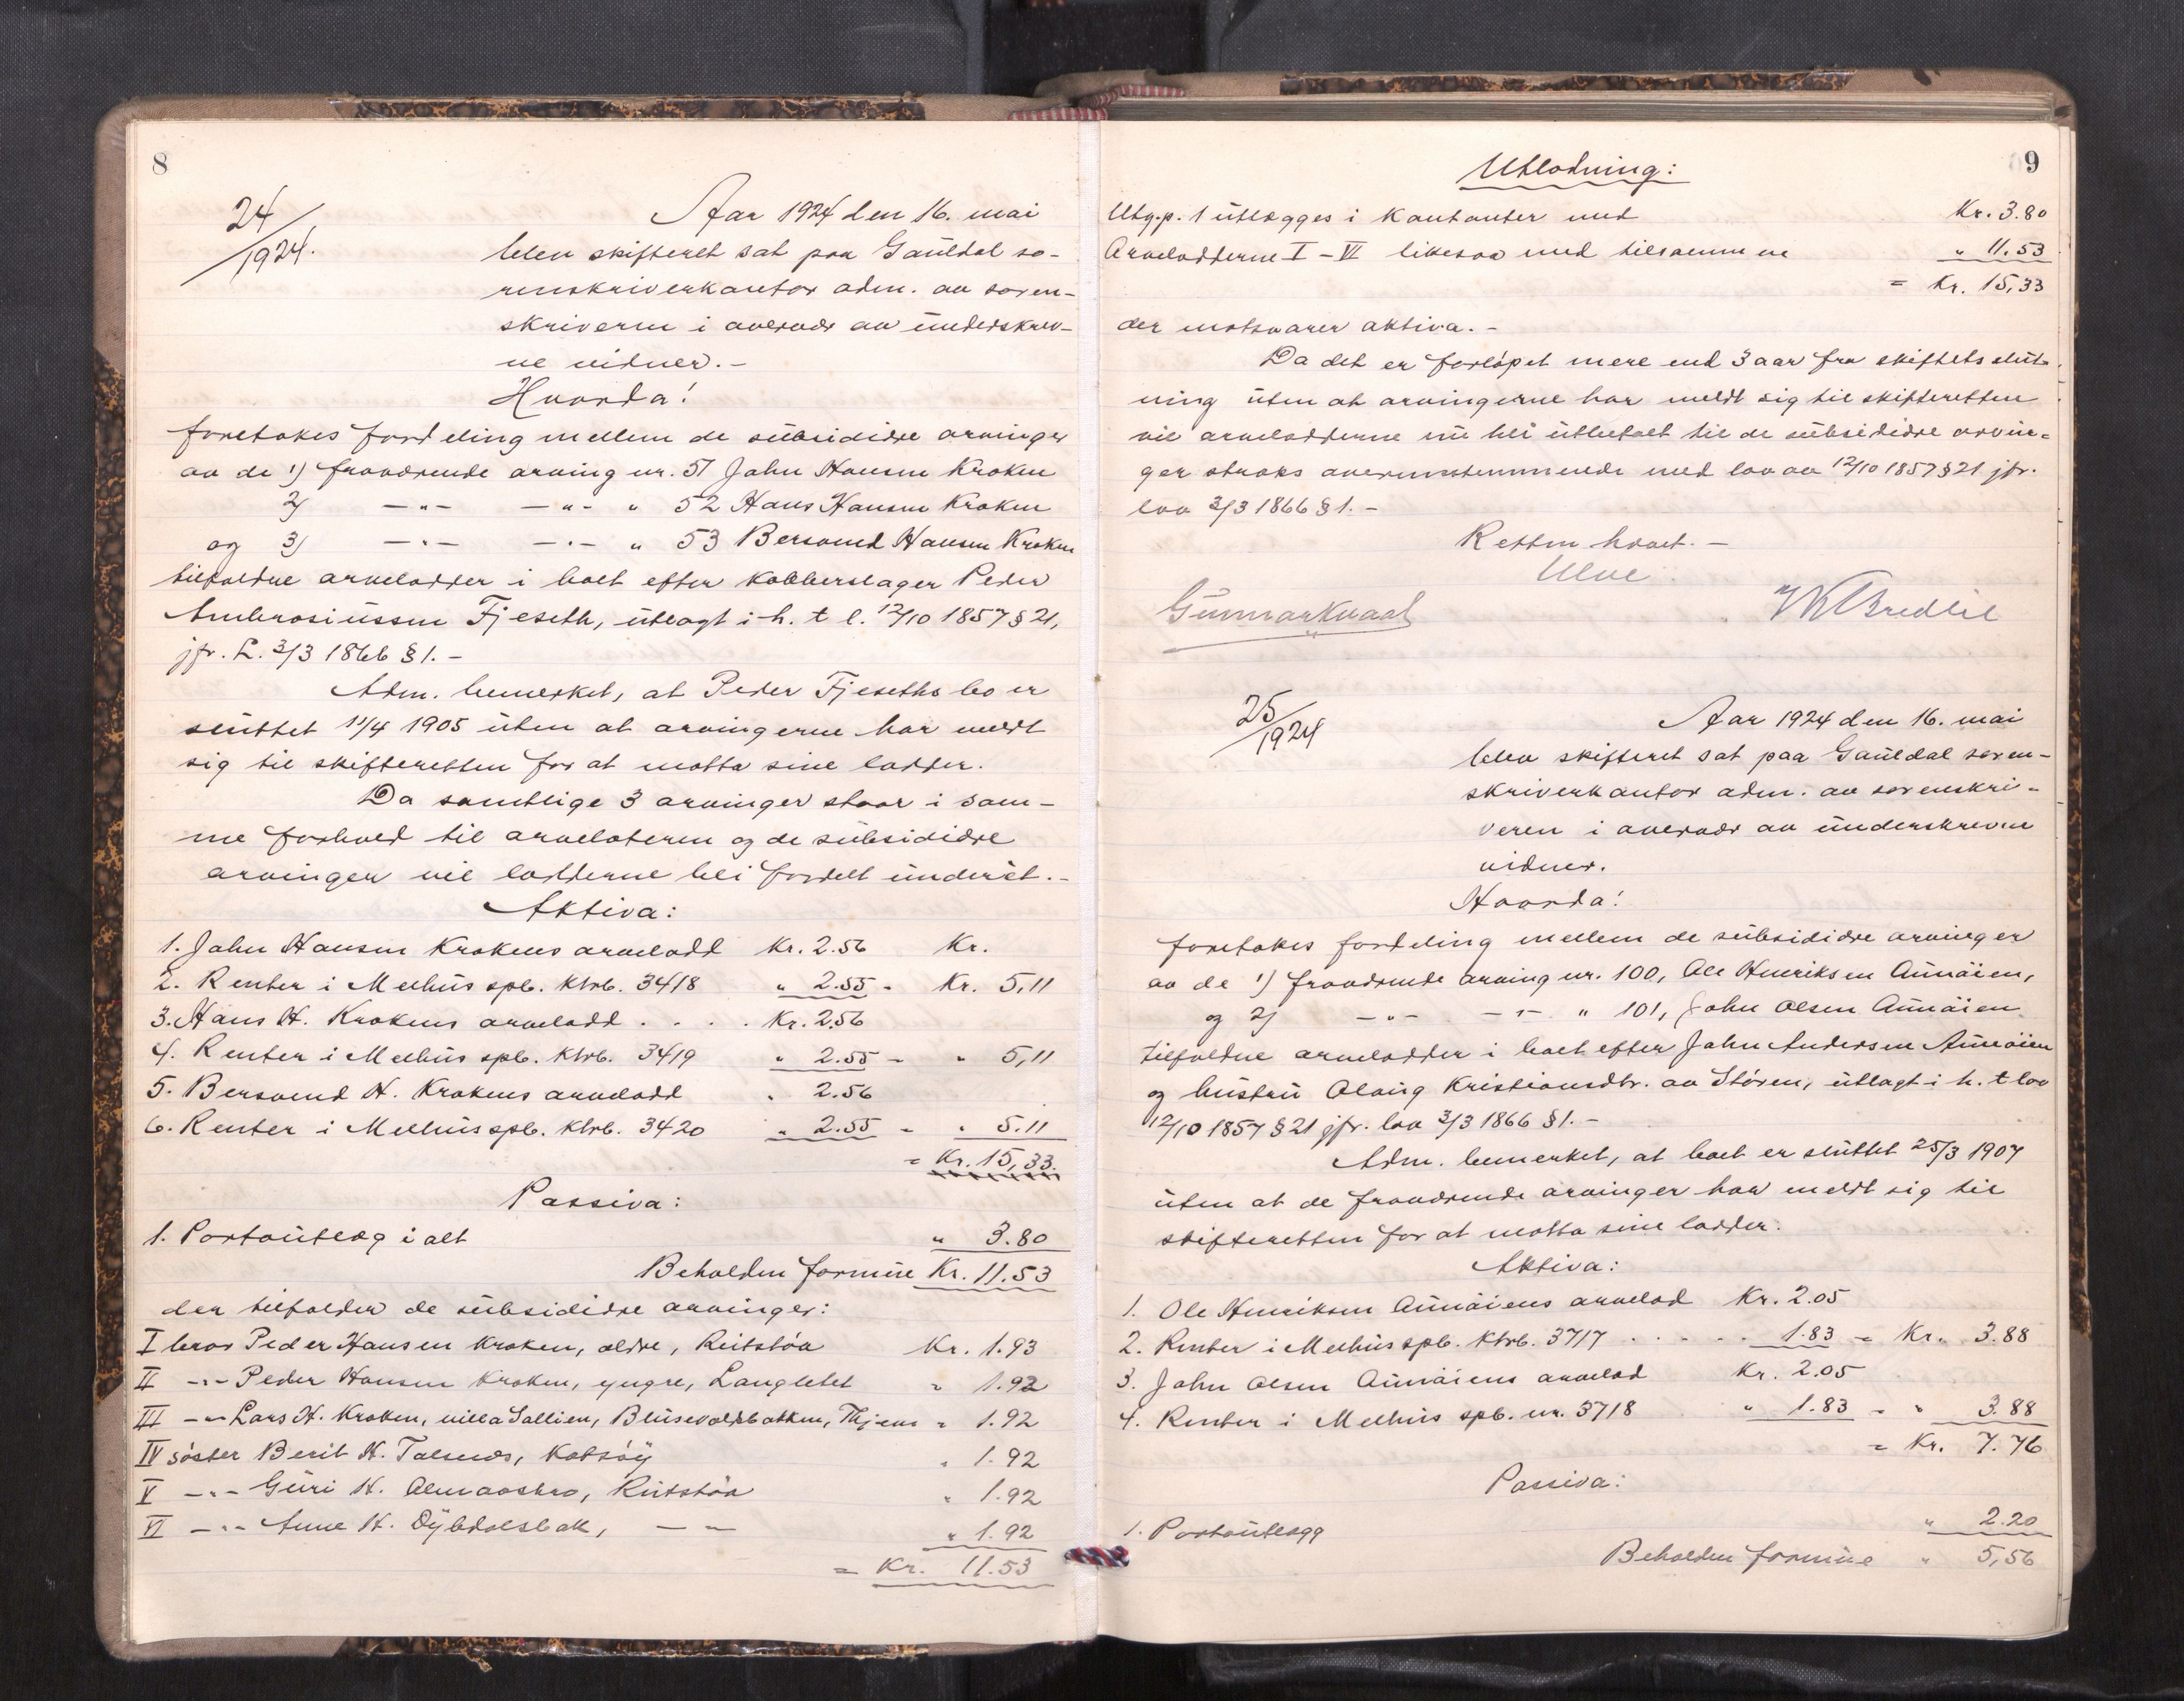 8
24/1924.
Aar 1924 den 16. mai
blev skifteret sat paa Gauldal so-
renskriverkontor adm. av soren-
skriveren i overvær av underskrev-
ne vidner.-
Hvorda!
foretokes fordeling mellem de subsidiære arvinger
av de 1) fraværende arving nr. 51 John Hansen Kroken
2) -"- -"- " 52 Hans Hansen Kroken
og 3) -"- -"- " 53 Bersvend Hansen Kroken
tilfaldne arvelodder i boet efter kobberslager Peder
Ambrosiussen Fjeseth, utlagt i h. t l. 12/10 1857 § 21,
jfr. L. 3/3 1866 § 1.-
Adm. bemerket, at Peder Fjeseths bo er
sluttet 11/4 1905 uten at arvingerne har meldt
sig til skifteretten for at motta sine lodder.
Da samtlige 3 arvinger staar i sam-
me forhold til arvelateren og de subsidiære
arvinger vil lodderne bli fordelt underet.-
Aktiva:
1. John Hansen Krokens arvelodd Kr. 2.56 Kr.
2. Renter i Melhus spb. ktrb. 3418 " 2.55 = Kr. 5,11
3. Hans H. Krokens arvelodd . . . . Kr. 2,56
4. Renter i Melhus spb. ktrb. 3419 " 2.55 = " 5,11
5. Bersvend H. Krokens arvelodd " 2.56
6. Renter i Melhus spb. ktrb. 3420 " 2.55 = " 5.11
= Kr. 15,33.
Passiva:
1. Portoutlæg i alt " 3.80
Beholden formue Kr. 11.53
der tilfalder de subsidiære arvinger:
I bror Peder Hansen Kroken, ældre, Reitstøa Kr. 1.93
II -"- Peder Hansen Kroken, yngre, Langletet " 1.92
III -"- Lars H. Kroken, villa Sollien, Blusevoldsbakken, Thjem " 1.92
IV søster Berit H. Talsnes, Kotsøy " 1.92
V -"- Guri H. Almaaskro, Reitstøa " 1.92
VI -"- Anne H. Dybdalsbak, -"- " 1.92
= Kr. 11.53
9
Utlodning:
Utg.p. 1 utlægges i kontanter med Kr. 3.80
Arvelodderne I - VI likesaa med tilsammen " 11.53
= Kr. 15,33
der motsvarer aktiva.-
Da det er forløpet mere end 3 aar fra skiftets slut-
ning uten at arvingerne har meldt sig til skifteretten
vil arvelodderne nu bli utbetalt til de subsidiære arvin-
ger straks overensstemmende med lov av 12/10 1857 § 21 jfr.
lov 3/3 1866 § 1.-
Retten hævet.-
Ulve
Gunnar Kvaal
25/1924
Aar 1924 den 16. mai
blev skifteret sat paa Gauldal soren-
skriverkontor adm. av sorenskri-
veren i overvær av underskrevne
vidner.
Hvorda!
foretokes fordeling mellem de subsidiære arvinger
av de 1) fraværende arving nr. 100, Ole Henriksen Aunøien,
og 2) -"- -"- " 101, John Olsen Aunøien
tilfaldne arvelodder i boet efter John Andersen Aunøien
og hustru Olaug Kristiansdtr. av Støren, utlagt i h. t lov
12/10 1857 § 21 jfr. lov 3/3 1866 § 1.-
Adm. bemerket, at boet er sluttet 25/3 1907
uten at de fraværende arvinger har meldt sig til
skifteretten for at motta sine lodder.
Aktiva:
1. Ole Henriksen Aunøiens arvelod Kr. 2.05
2. Renter i Melhus spb. ktrb. 3717 . . . . . 1.83 = Kr. 3.88
3. John Olsen Aunøiens arvelod Kr. 2.05
4. Renter i Melhus spb. nr. 3718 " 1.83 = " 3.88
= Kr. 7.76
Passiva:
1. Portoutlægg " 2.20
Beholden formue " 5,56